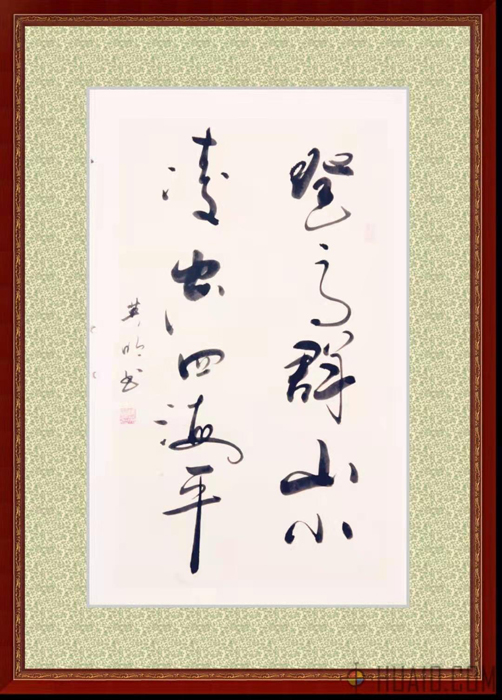 登高群山小
凌空四海平
书
HUAID.COM